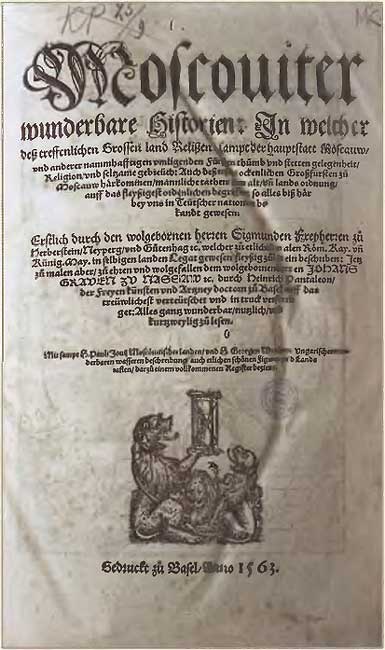 Moscouiter
wunderbare Historien: In welcher
deß treffenlichen Grossen land Reüßen sampt der hauptstatt Moscauw/
vnd anderer nammhafftigen vmligenden Fürsten thůmb vnd stetten gelegenheit/
Religion/vnd seltzame gebreüch: Auch deß erschrockenlichen Großfürsten zů
Moscauw härkommen/mannliche vnd lands ordnung/
auff das fleyßigest ordenlichen begriffen: so alles biß här
bey vns in Teütscher nation
kandt gewesen.
Erstlich durch den wolgebornen herren Sigmunden Freyherren zů
Herberstein/Neyperg/vnd Gůtenhag ꝛc. welcher zů etlichen malen Röm. Kay. vñ
Künig. May. in selbigen landen Legat gewesen/fleyßig zů latein beschriben: Jetz
zů malen aber/zů ehren vnd wolgefallen dem wolgebornen herren JOHANS
GRAVEN ZV NASSAW ꝛc. durch Heinrich Pantaleon/
der Freyen künsten vnd Artzney doctorn zů Basel auff das
treüwlichest verteütschet vnd in truck
Alles gantz wunderbar/nutzlich/vnd
kurtzweylig zů lesen.
Mit sampt H. Pauli Jouij Moscouitischer landen/vnd H. Georgen Ungarischer
derbaren wasseren beschreybung/auch etlichen schönen
dar zů einem vollkommenen Register
Gedruckt zů Basel/Anno 1563.